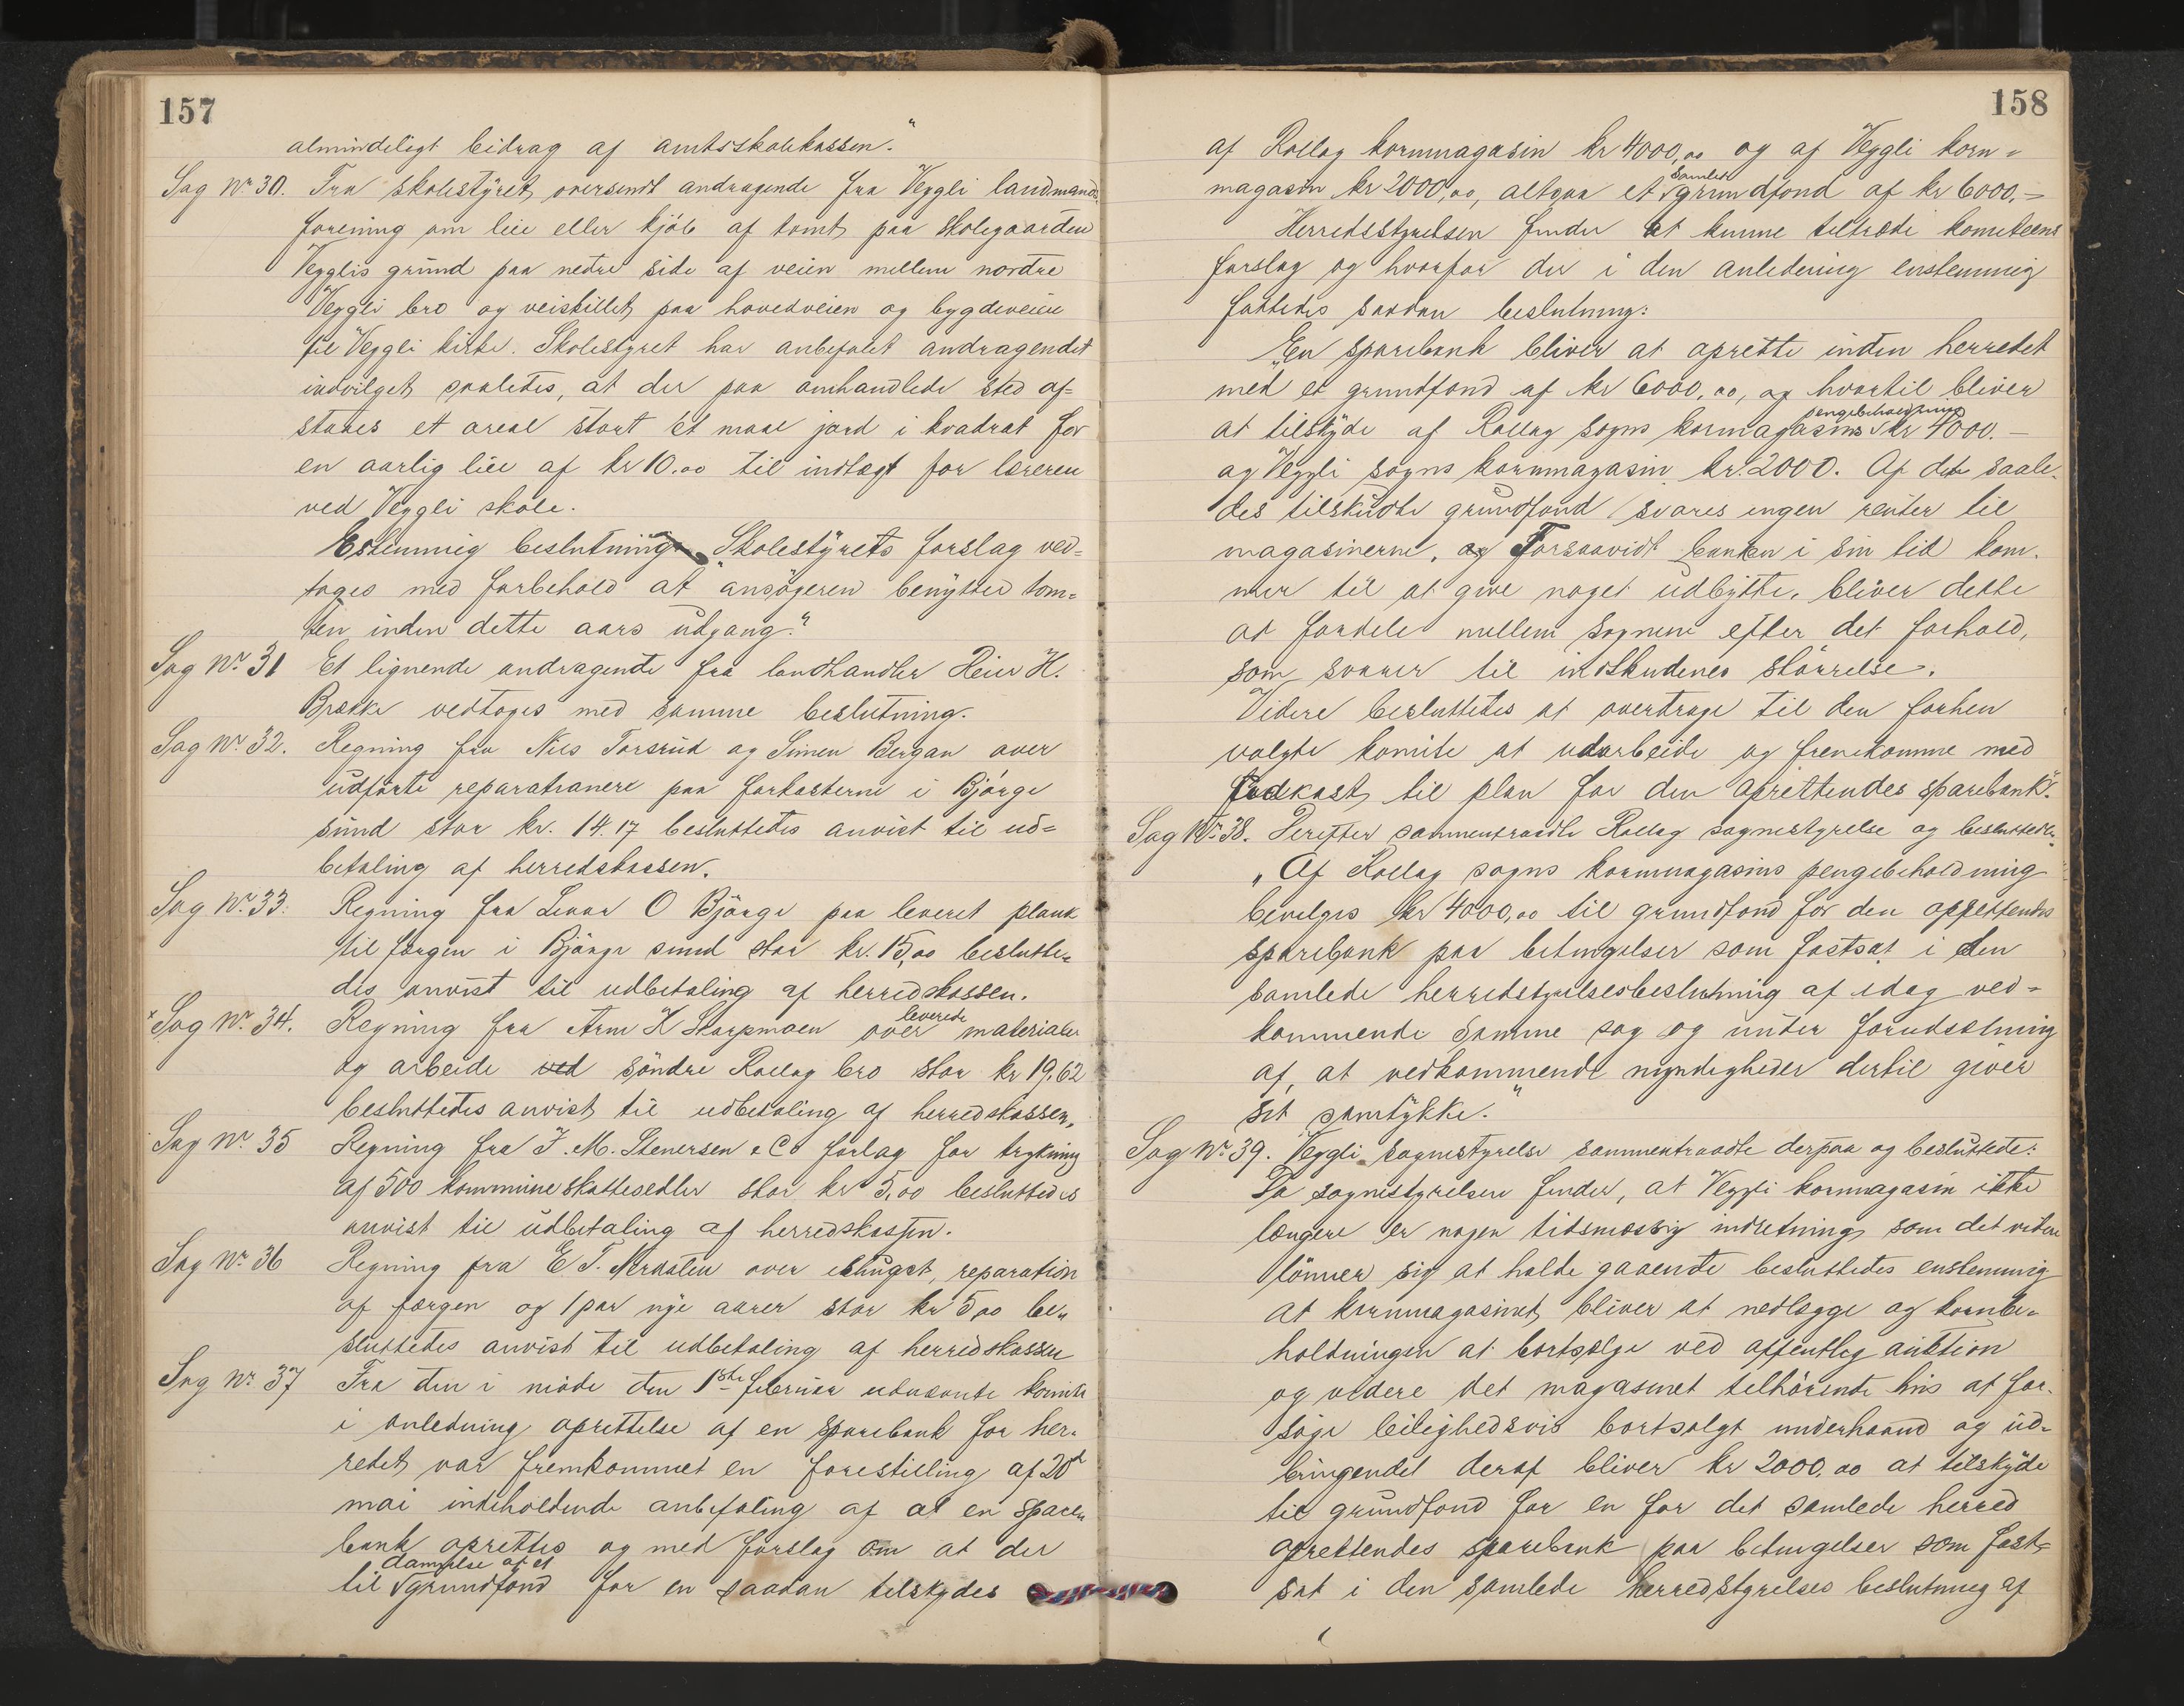 157
almindeligt bidrag af amtsskolekassen."
Sag Nr 30. Fra skolestyret oversendt andragende fra Veggli landmands
forening om leie eller kjøb af tomt paa skolegaarden
Vegglis grund paa nedre side af veien mellem nordre
Veggli bro og veiskillet paa hovedveien og bygdeveien
til Veggli kirke. Skolestyret har anbefalet andragendet
indvilget saaledes, at der paa omhandlede sted af=
staaes et areal stort et maal jord i kvadrat for
en aarlig leie af kr 10.00 til indtægt for læreren
ved Veggli skole.
Estemmig beslutning „Skolestyrets forslag ved=
toges med forbehold at ansøgeren benytter tom=
ten inden dette aars udgang."
Sag Nr. 31 Et lignende andragende fra landhandler Reier H.
Brække vedtoges med samme beslutning.
Sag Nr. 32. Regning fra Nils Torsrud og Simen Bergan over
udførte reparationere paa forkasterne i Bjørge
sund stor kr. 14.17 besluttedes anvist til ud=
betaling af herredskassen.
Sag Nr. 33. Regning fra Levor O Bjørge paa leveret plank
til færgen i Bjørge sund stor kr. 15,00 beslutte=
des anvist til udbetaling af herredskassen.
Sag Nr. 34. Regning fra Arne K Skarpmoen over leverede materialer
og arbeide ved søndre Rollag bro stor kr 19,62
besluttedes anvist til udbetaling af herredskassen.
Sag Nr 35 Regning fra J. M. Stenersen & Co forlag for trykning
af 500 kommuneskattesedler stor kr 5,00 besluttedes
anvist til udbetaling af herredskassen.
Sag Nr. 36 Regning fra E T. Nerdalen over ishugst, reparation
af færgen og 1 par nye aarer stor kr 5,00 be=
sluttedes anvist til udbetaling af herredskassen
Sag Nr. 37 Fra den i møde den 1ste februar udnævnte komite
i anledning oprettelse af en sparebank for her=
redet var fremkommet en forestilling af 20d
mai indeholdende anbefaling af at en spare=
bank oprettes og med forslag om at der
til dannelse af et grundfond for en saadan tilskydes
158
af Rollag kornmagasin kr 4000,00 og af Veggli korn=
magasin kr 2000,00, altsaa et samlet grundfond af kr 6000,=
Herredsstyrelsen finder at kunne tiltræde komiteens
forslag og hvorfor der i den anledning enstemmig
fattedes saadan beslutning:
„En sparebank bliver at oprette inden herredet
med et grundfond af kr 6000,00, og hvortil bliver
at tilskyde af Rollag sogns kornmagasins pengebeholdning kr 4000.—
og Veggli sogns kornmagasin kr. 2000. Af det saale=
des tilskudte grundfond svares ingen renter til
magasinerne, og Forsaavidt banken i sin tid kom=
mer til at give noget udbytte, bliver dette
at fordele mellem sognene efter det forhold,
som svarer til indskudenes størrelse.
Videre besluttedes at overdrage til den forhen
valgte komite at udarbeide og fremkomme med
udkast til plan for den oprettendes sparebank".
Sag Nr. 38. Derefter sammentraadte Rollag sognestyrelse og besluttede:
„Af Rollag sogns kornmagasins pengebeholdning
bevilges kr 4000,00 til grundfond for den oprettendes
sparebank paa betingelser som fastsat i den
samlede herredstyrelsesbeslutning af idag ved=
kommende samme sag og under forudsætning
af, at vedkommende myndigheder dertil giver
sit samtykke."
Sag Nr. 39. Veggli sognestyrelse sammentraadte derpaa og besluttede:
Da sognestyrelsen finder, at Veggli kornmagasin ikke
længere er nogen tidsmæssig indretning som det videre
lønner sig at holde gaaende besluttedes enstemmig
at kornmagasinet bliver at nedlægge og kornbe=
holdningen at bortsælge ved offentlig auktion
og videre det magasinet tilhørende hus at for=
søge leilighedsvis bortsolgt underhaand og ud=
bringendet deraf bliver kr 2000,00 at tilskyde
til grundfond for en for det samlede herred
oprettendes sparebank paa betingelser som fast=
sat i den samlede herredsstyrelses beslutning af